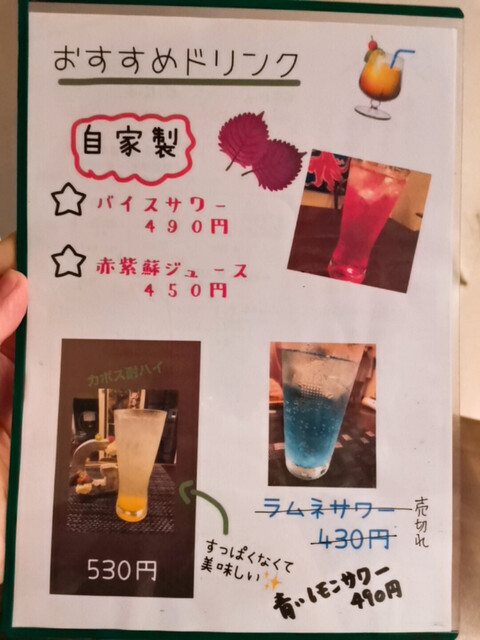 おすすめドリンク
自家製
バイスサワー
490円
赤紫蘇ジュース
450円
カボス酎ハイ
530円
すっぱくなくて
美味しい
ラムネサワー
430円
売切れ
青いレモンサワー
490円